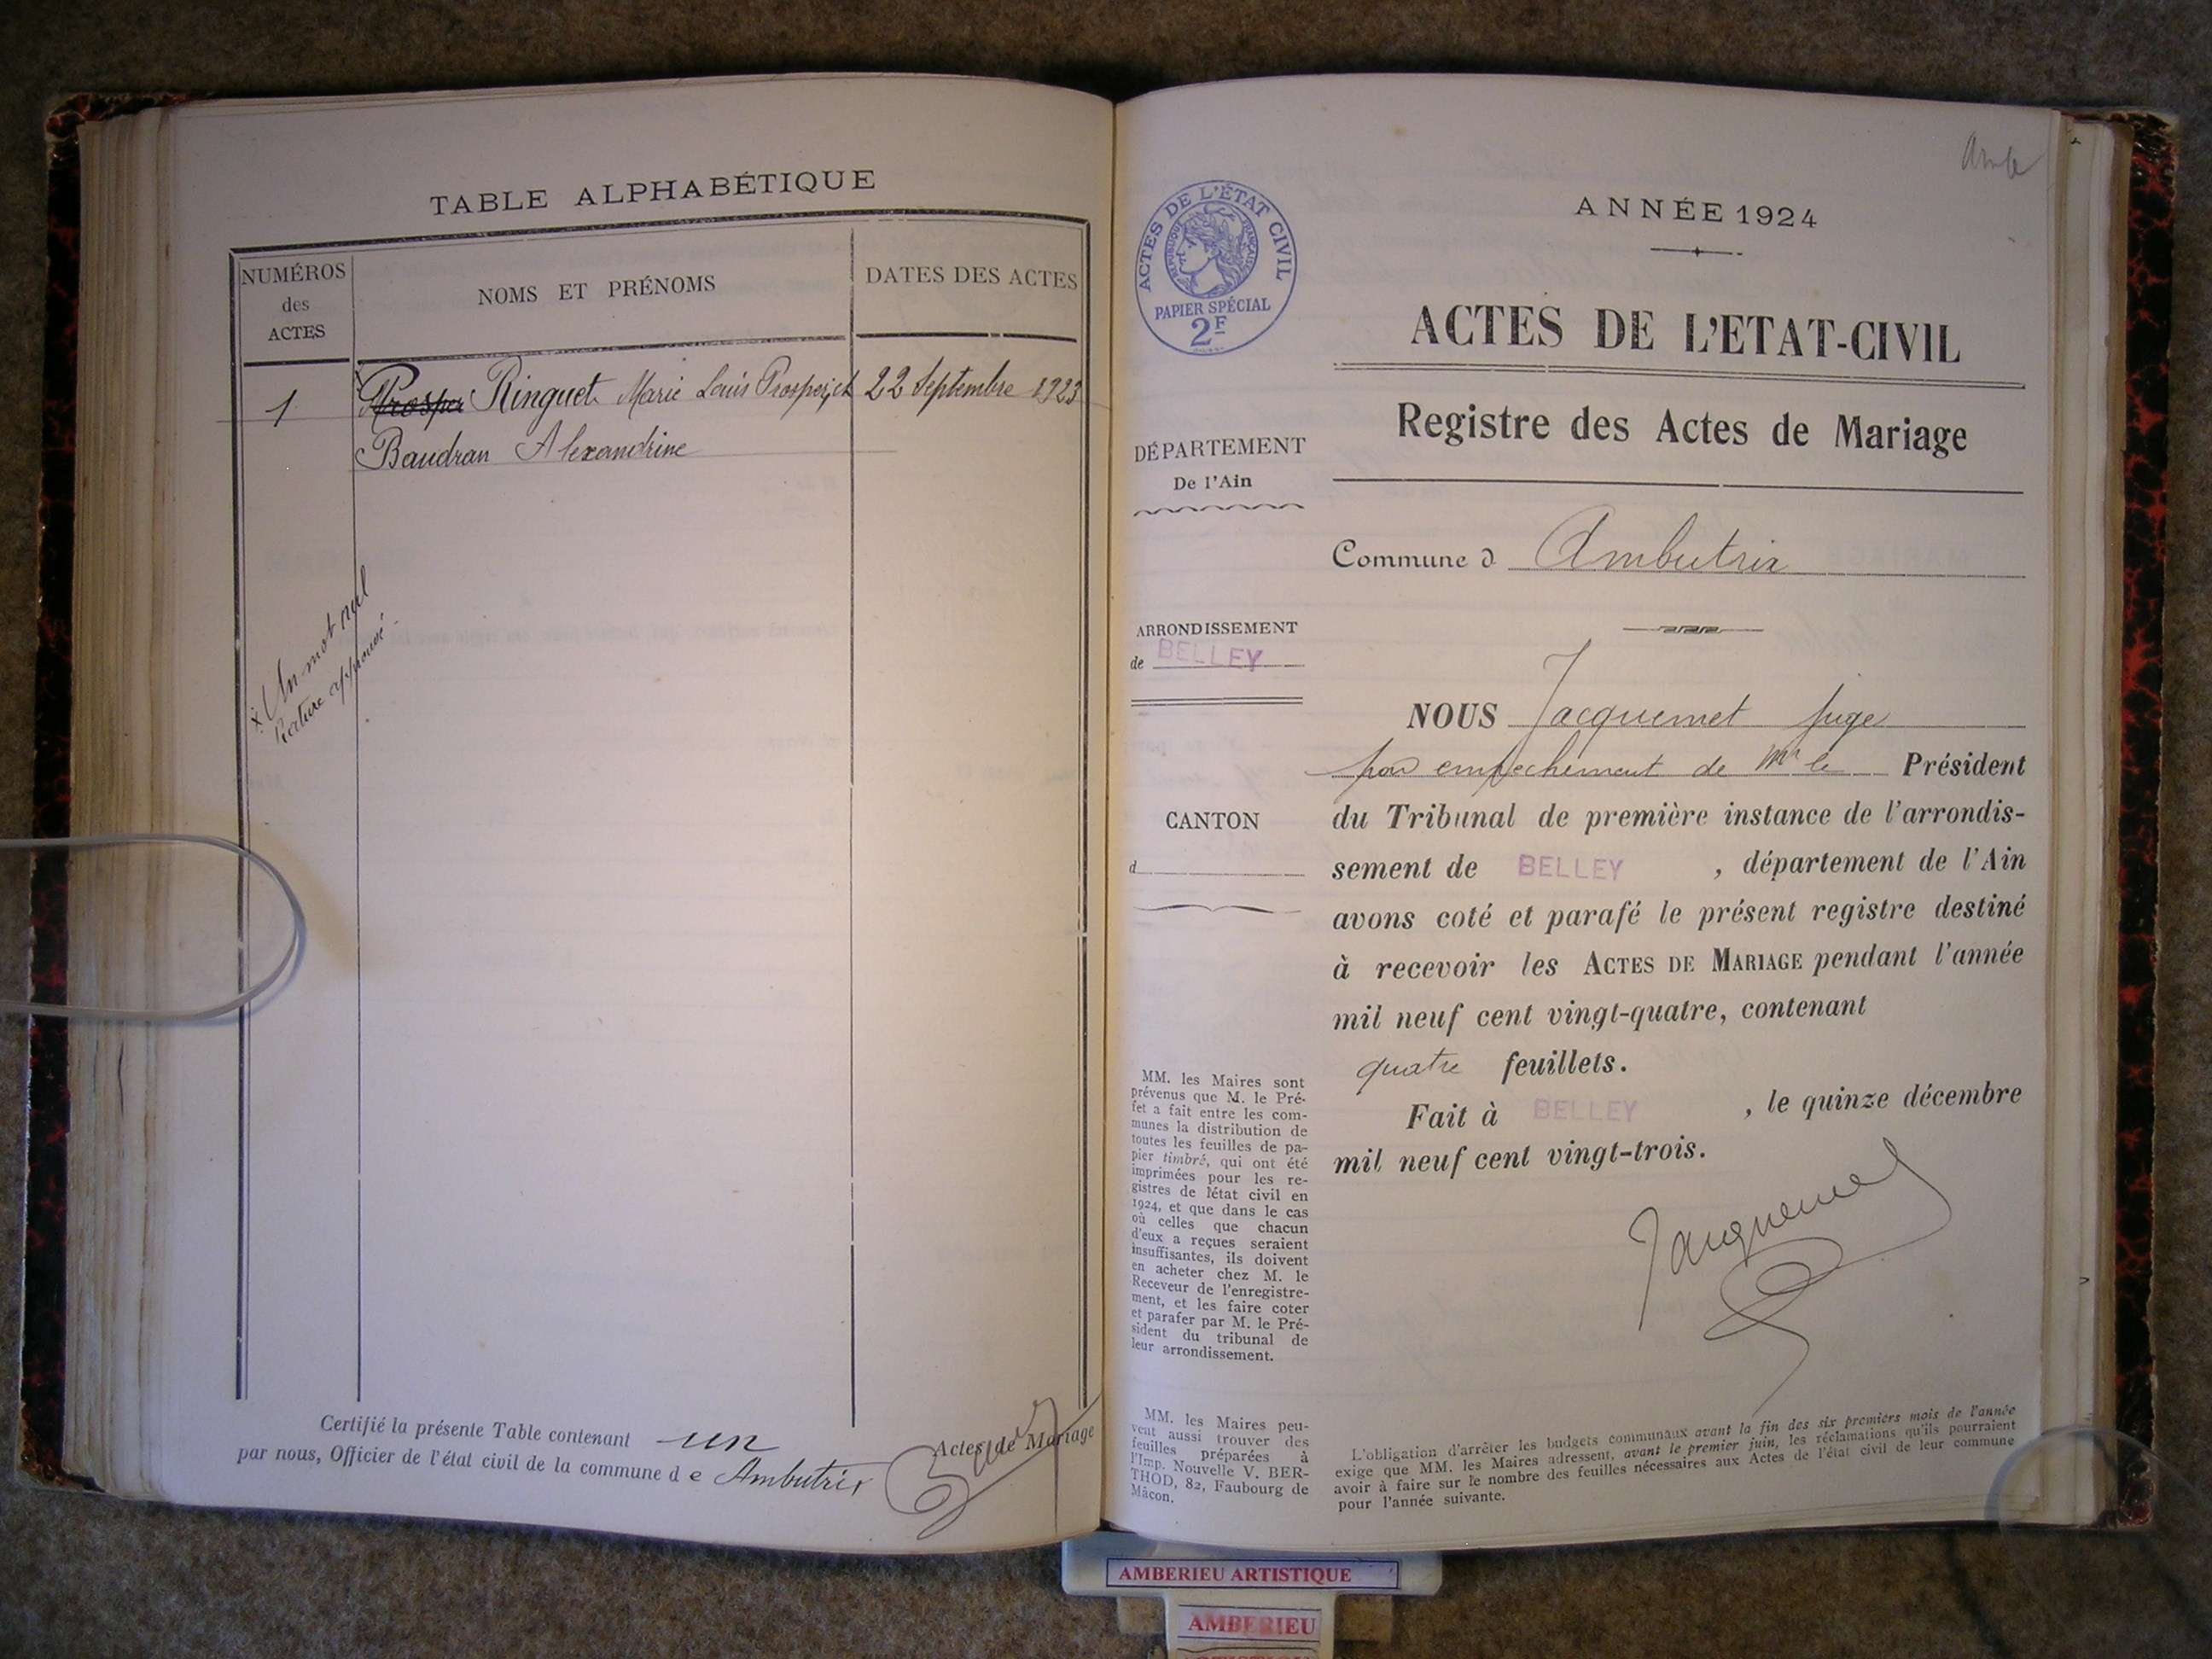 TABLE ALPHABÉTIQUE
NUMÉROS
des
ACTES
NOMS ET PRÉNOMS
DATES DES ACTES
1
Prosper Ringuet Marie Louis Prosper, et
22 Septembre 1923
Baudran Alexandrine
x Un mot nul
Rature approuvé
Certifié la présente Table contenant un Actes de Mariage
par nous, Officier de l'état civil de la commune d e Ambutrix
Amb
ACTES DE L'ÉTAT CIVIL
RÉPUBLIQUE FRANÇAISE
PAPIER SPÉCIAL
2F
DÉPARTEMENT
De l'Ain
ARRONDISSEMENT
de BELLEY
CANTON
d
MM. les Maires sont
prévenus que M. le Pré-
fet a fait entre les com-
munes la distribution de
toutes les feuilles de pa-
pier timbré, qui ont été
imprimées pour les re-
gistres de l'état civil en
1924, et que dans le cas
où celles que chacun
d'eux a reçues seraient
insuffisantes, ils doivent
en acheter chez M. le
Receveur de l'enregistre-
ment, et les faire coter
et parafer par M. le Pré-
sident du tribunal de
leur arrondissement.
MM. les Maires peu-
vent aussi trouver des
feuilles préparées à
l'Imp. Nouvelle V. BER-
THOD, 82, Faubourg de
Mâcon.
ANNÉE 1924
ACTES DE L'ETAT-CIVIL
Registre des Actes de Mariage
Commune d Ambutrix
NOUS Jacquemet juge
par empechement de Mr le Président
du Tribunal de première instance de l'arrondis-
sement de BELLEY , département de l'Ain
avons coté et parafé le présent registre destiné
à recevoir les ACTES DE MARIAGE pendant l'année
mil neuf cent vingt-quatre, contenant
quatre feuillets.
Fait à BELLEY , le quinze décembre
mil neuf cent vingt-trois.
Jacquemet
L'obligation d'arrêter les budgets communaux avant la fin des six premiers mois de l'année
exige que MM. les Maires adressent, avant le premier juin, les réclamations qu'ils pourraient
avoir à faire sur le nombre des feuilles nécessaires aux Actes de l'état civil de leur commune
pour l'année suivante.
AMBERIEU ARTISTIQUE
AMBERIEU